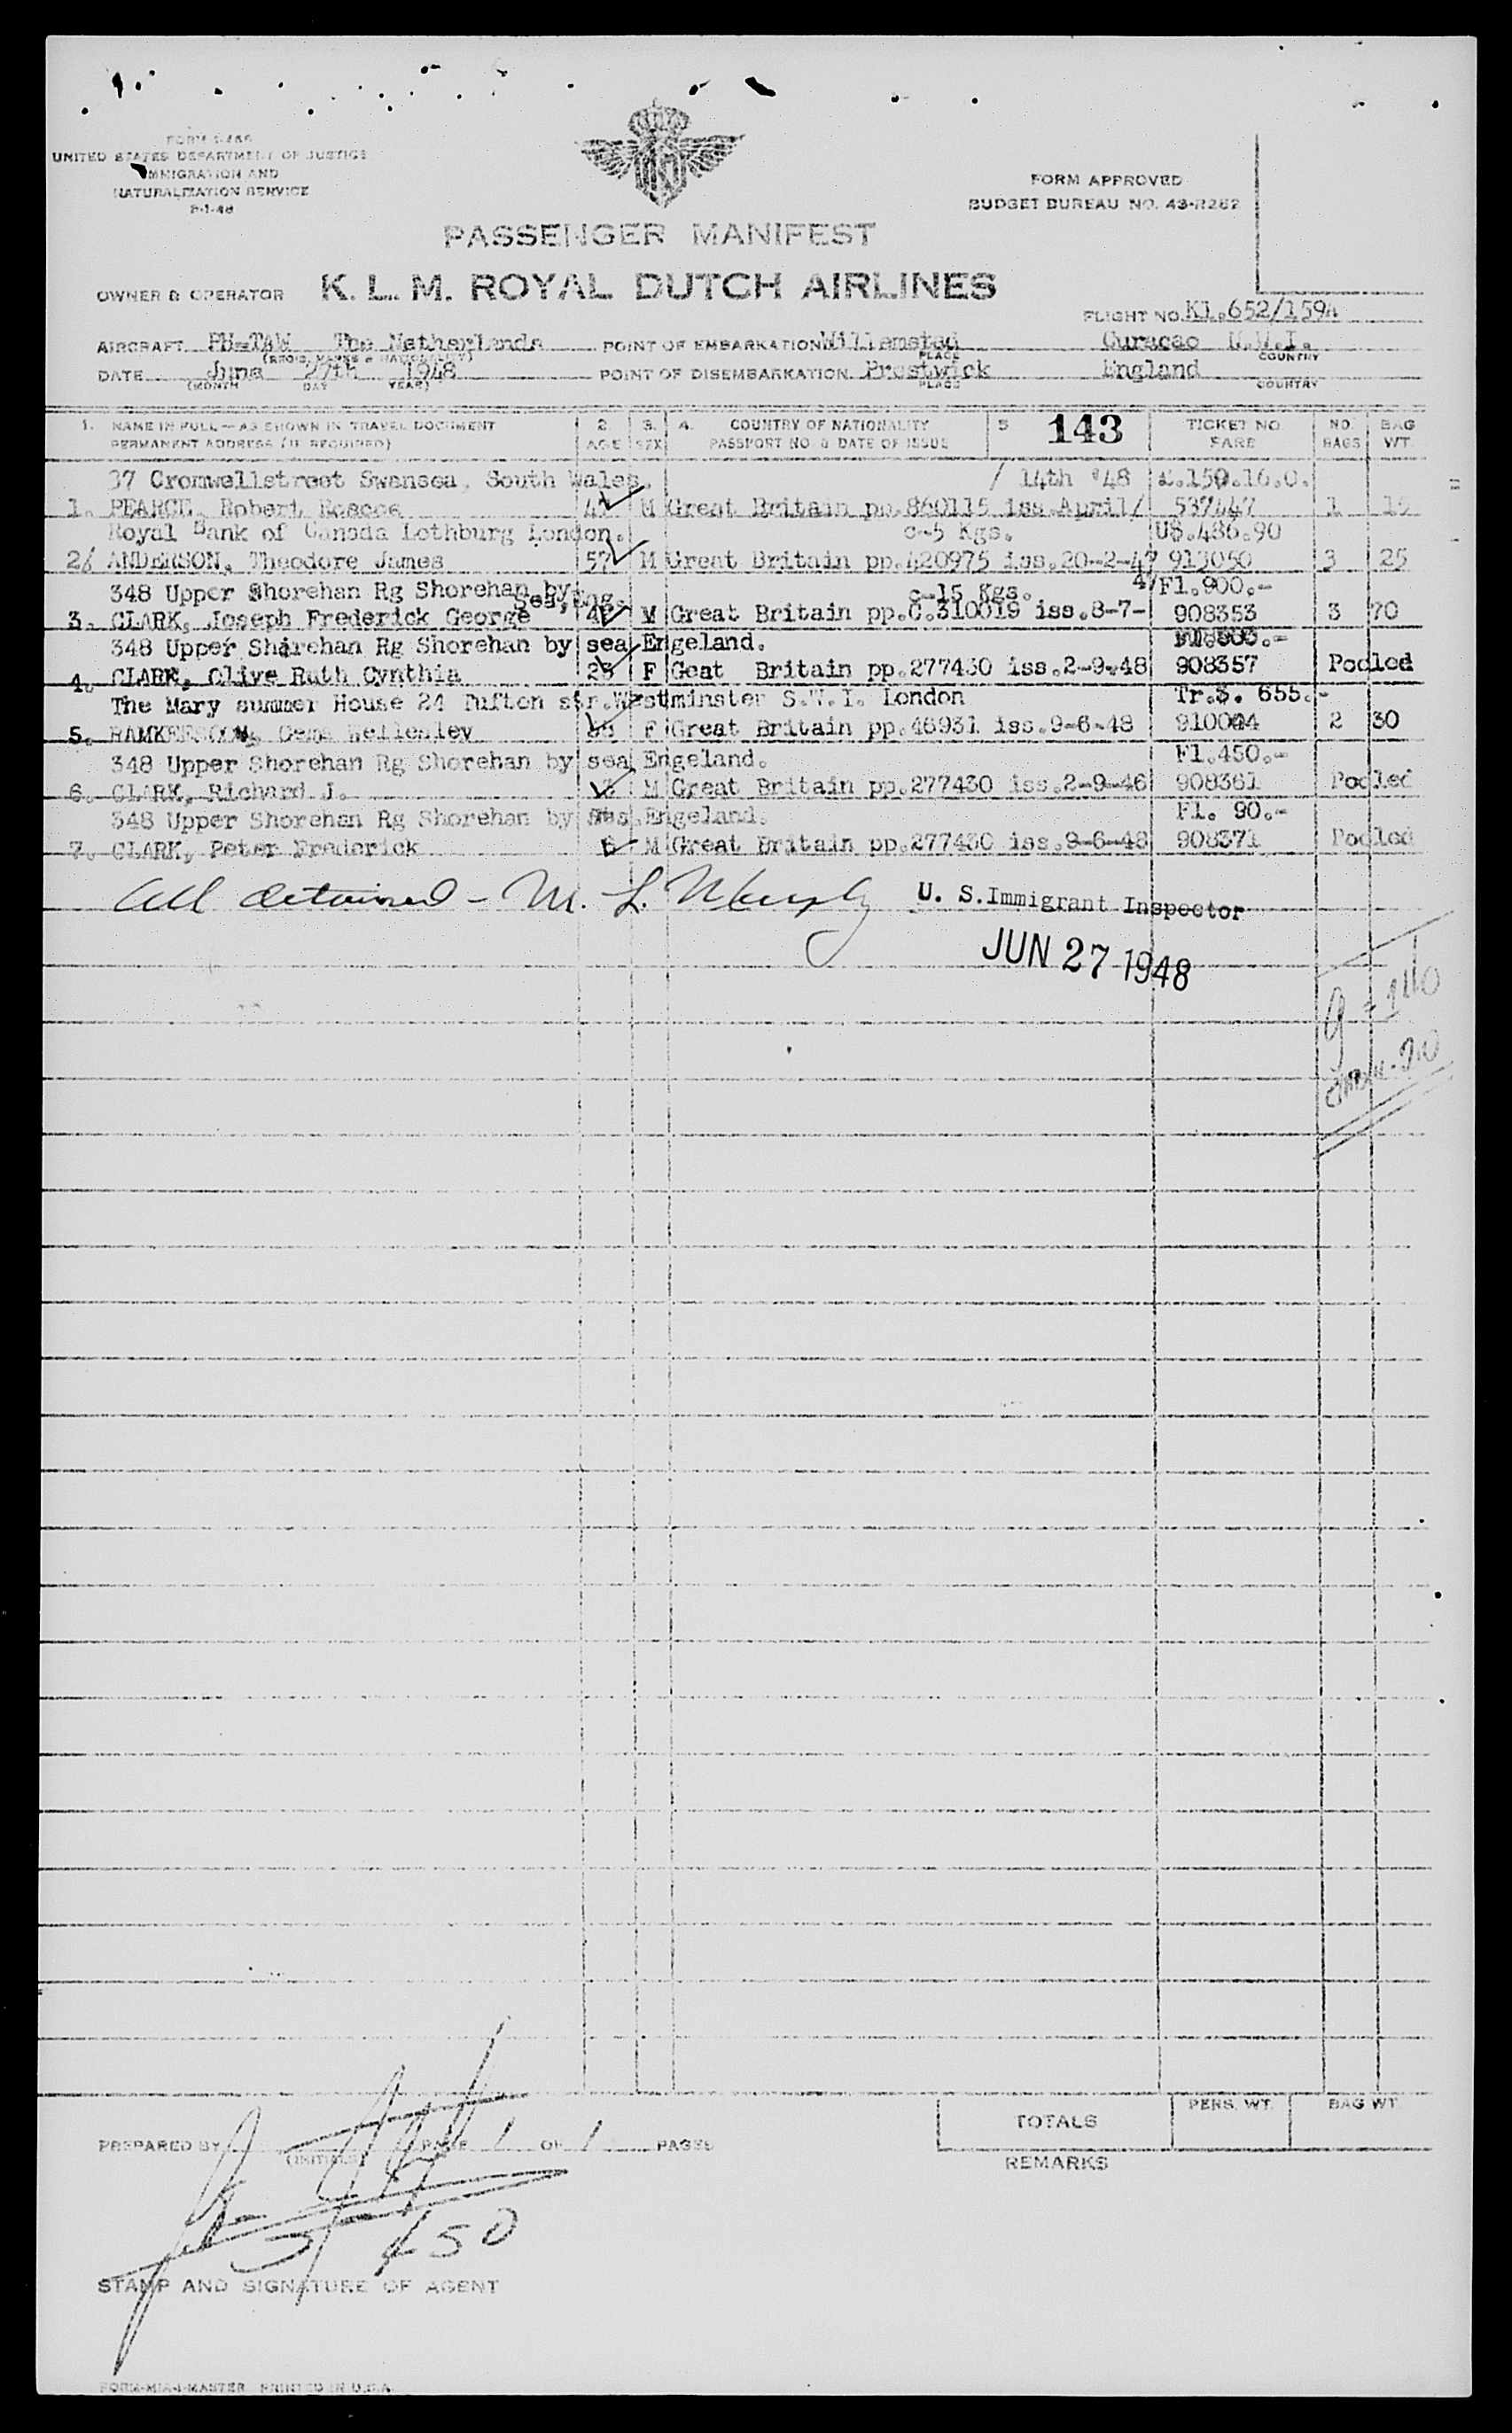 FORM I-466
UNITED STATES DEPARTMENT OF JUSTICE
IMMIGRATION AND
NATURALIZATION SERVICE
FORM APPROVED
BUDGET BUREAU NO. 43-R262
PASSENGER MANIFEST
OWNER & OPERATOR K. L. M. ROYAL DUTCH AIRLINES
FLIGHT NO. Kl.652/159A
AIRCRAFT PH-TAW The Netherlands POINT OF EMBARKATION Willemstad Curacao N.W.I.
(REGIS. MARKS & NATIONALITY) PLACE COUNTRY
DATE June 27th 1948 POINT OF DISEMBARKATION Prestwick England
(MONTH DAY YEAR) PLACE COUNTRY
1. NAME IN FULL — AS SHOWN IN TRAVEL DOCUMENT 2. 3. 4. COUNTRY OF NATIONALITY 5 143 TICKET NO. NO. BAG
PERMANENT ADDRESS (IF REQUIRED) AGE SEX PASSPORT NO. & DATE OF ISSUE FARE BAGS WT.
37 Cromwellstreet Swansea, South Wales. / 14th '48 £.150.16.0.
1. PEARCE, Robert Roscoe M Great Britain pp.860115 iss.April/ 537447 1 15
Royal Bank of Canada Lothburg London. c-5 Kgs. U$.486.90
2/ ANDERSON, Theodore James 57 M Great Britain pp.420975 iss.20-2-47 913050 3 25
348 Upper Shorehan Rg Shorehan by Sea,Eng. c-15 Kgs. 47 Fl.900.-
3. CLARK, Joseph Frederick George M Great Britain pp.C.310019 iss.8-7- 908353 3 70
348 Upper Shorehan Rg Shorehan by sea Engeland. Fl.900.-
4. CLARK, Olive Ruth Cynthia F Geat Britain pp.277430 iss.2-9-48 908357 Pooled
The Mary summer House 24 Tufton str.Westminster S.W.I. London Tr.$. 655.-
5. Wellesley F Great Britain pp.46931 iss.9-6-48 910004 2 30
348 Upper Shorehan Rg Shorehan by sea Engeland. Fl.450.-
6. CLARK, Richard J. M Great Britain pp.277430 iss.2-9-46 908361 Pooled
348 Upper Shorehan Rg Shorehan by sea.Engeland. Fl. 90.-
7. CLARK, Peter Frederick M Great Britain pp.277430 iss.9-6-48 908371 Pooled
All detained - M. L. Murphy U. S. Immigrant Inspector
JUN 27 1948
TOTALS PERS. WT. BAG WT.
PREPARED BY (INITIALS) PAGE 1 OF 1 PAGES
REMARKS
450
STAMP AND SIGNATURE OF AGENT
FORM-MIA-1-MASTER PRINTED IN U.S.A.